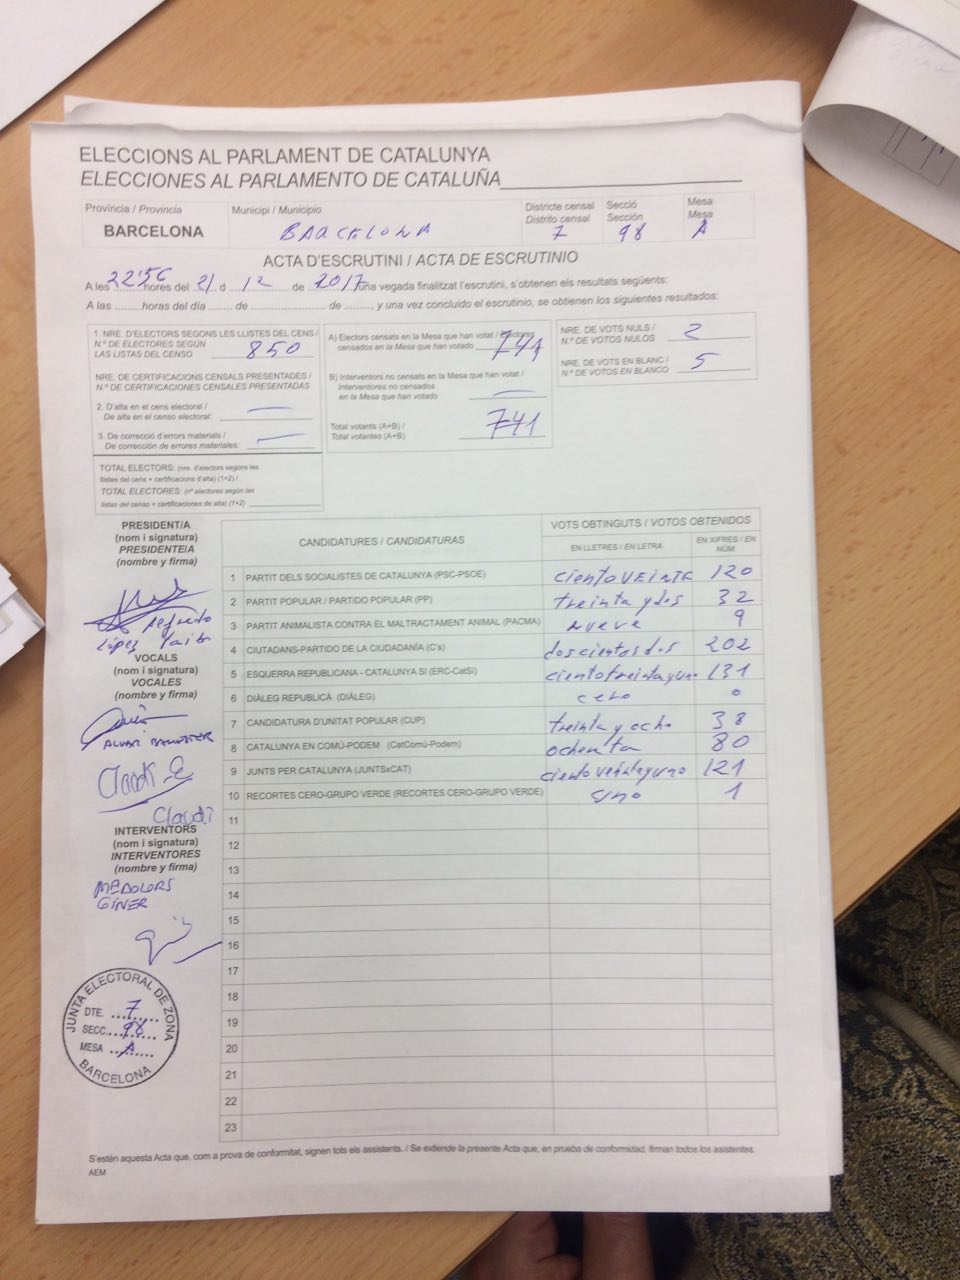 ELECCIONS AL PARLAMENT DE CATALUNYA
ELECCIONES AL PARLAMENTO DE CATALUÑA
Província / Provincia
BARCELONA
Municipi / Municipio
BARCELONA
Districte censal
Distrito censal
7
Secció
Sección
98
Mesa
Mesa
A
ACTA D'ESCRUTINI / ACTA DE ESCRUTINIO
A les 22'56 hores del 21 d 12 de 2017 una vegada finalitzat l'escrutini, s'obtenen els resultats següents:
A las .........horas del día ...... de ........................ de ........., y una vez concluido el escrutinio, se obtienen los siguientes resultados:
1. NRE. D'ELECTORS SEGONS LES LLISTES DEL CENS /
N.º DE ELECTORES SEGÚN
LAS LISTAS DEL CENSO 850
NRE. DE CERTIFICACIONS CENSALS PRESENTADES /
N.º DE CERTIFICACIONES CENSALES PRESENTADAS
2. D'alta en el cens electoral /
De alta en el censo electoral: —
3. De correcció d'errors materials /
De corrección de errores materiales: —
TOTAL ELECTORS: (nre. d'electors segons les
llistes del cens + certificacions d'alta) (1+2) /
TOTAL ELECTORES: (nº electores según las
listas del censo + certificaciones de alta) (1+2)
A) Electors censats en la Mesa que han votat / Electores
censados en la Mesa que han votado 741
B) Interventors no censats en la Mesa que han votat /
Interventores no censados
en la Mesa que han votado —
Total votants (A+B) /
Total votantes (A+B) 741
NRE. DE VOTS NULS /
N.º DE VOTOS NULOS 2
NRE. DE VOTS EN BLANC /
N.º DE VOTOS EN BLANCO 5
PRESIDENT/A
(nom i signatura)
PRESIDENTE/A
(nombre y firma)
Alfredo
López
VOCALS
(nom i signatura)
VOCALES
(nombre y firma)
ALVAR
Claudi
INTERVENTORS
(nom i signatura)
INTERVENTORES
(nombre y firma)
Mª DOLORS
GINER
JUNTA ELECTORAL DE ZONA
DTE. 7
SECC. 98
MESA A
BARCELONA
CANDIDATURES / CANDIDATURAS
VOTS OBTINGUTS / VOTOS OBTENIDOS
EN LLETRES / EN LETRA
EN XIFRES / EN NÚM.
1 PARTIT DELS SOCIALISTES DE CATALUNYA (PSC-PSOE) ciento VEINTE 120
2 PARTIT POPULAR / PARTIDO POPULAR (PP) treinta y dos 32
3 PARTIT ANIMALISTA CONTRA EL MALTRACTAMENT ANIMAL (PACMA) nueve 9
4 CIUTADANS-PARTIDO DE LA CIUDADANÍA (C's) doscientos dos 202
5 ESQUERRA REPUBLICANA - CATALUNYA SÍ (ERC-CatSí) ciento treinta y uno 131
6 DIÀLEG REPUBLICÀ (DIÀLEG) cero 0
7 CANDIDATURA D'UNITAT POPULAR (CUP) treinta y ocho 38
8 CATALUNYA EN COMÚ-PODEM (CatComú-Podem) ochenta 80
9 JUNTS PER CATALUNYA (JUNTSxCAT) ciento veinteyuno 121
10 RECORTES CERO-GRUPO VERDE (RECORTES CERO-GRUPO VERDE) uno 1
11
12
13
14
15
16
17
18
19
20
21
22
23
S'estén aquesta Acta que, com a prova de conformitat, signen tots els assistents. / Se extiende la presente Acta que, en prueba de conformidad, firman todos los asistentes.
AEM